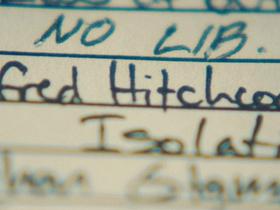 NO LIB.
fred Hitchco
Isolat